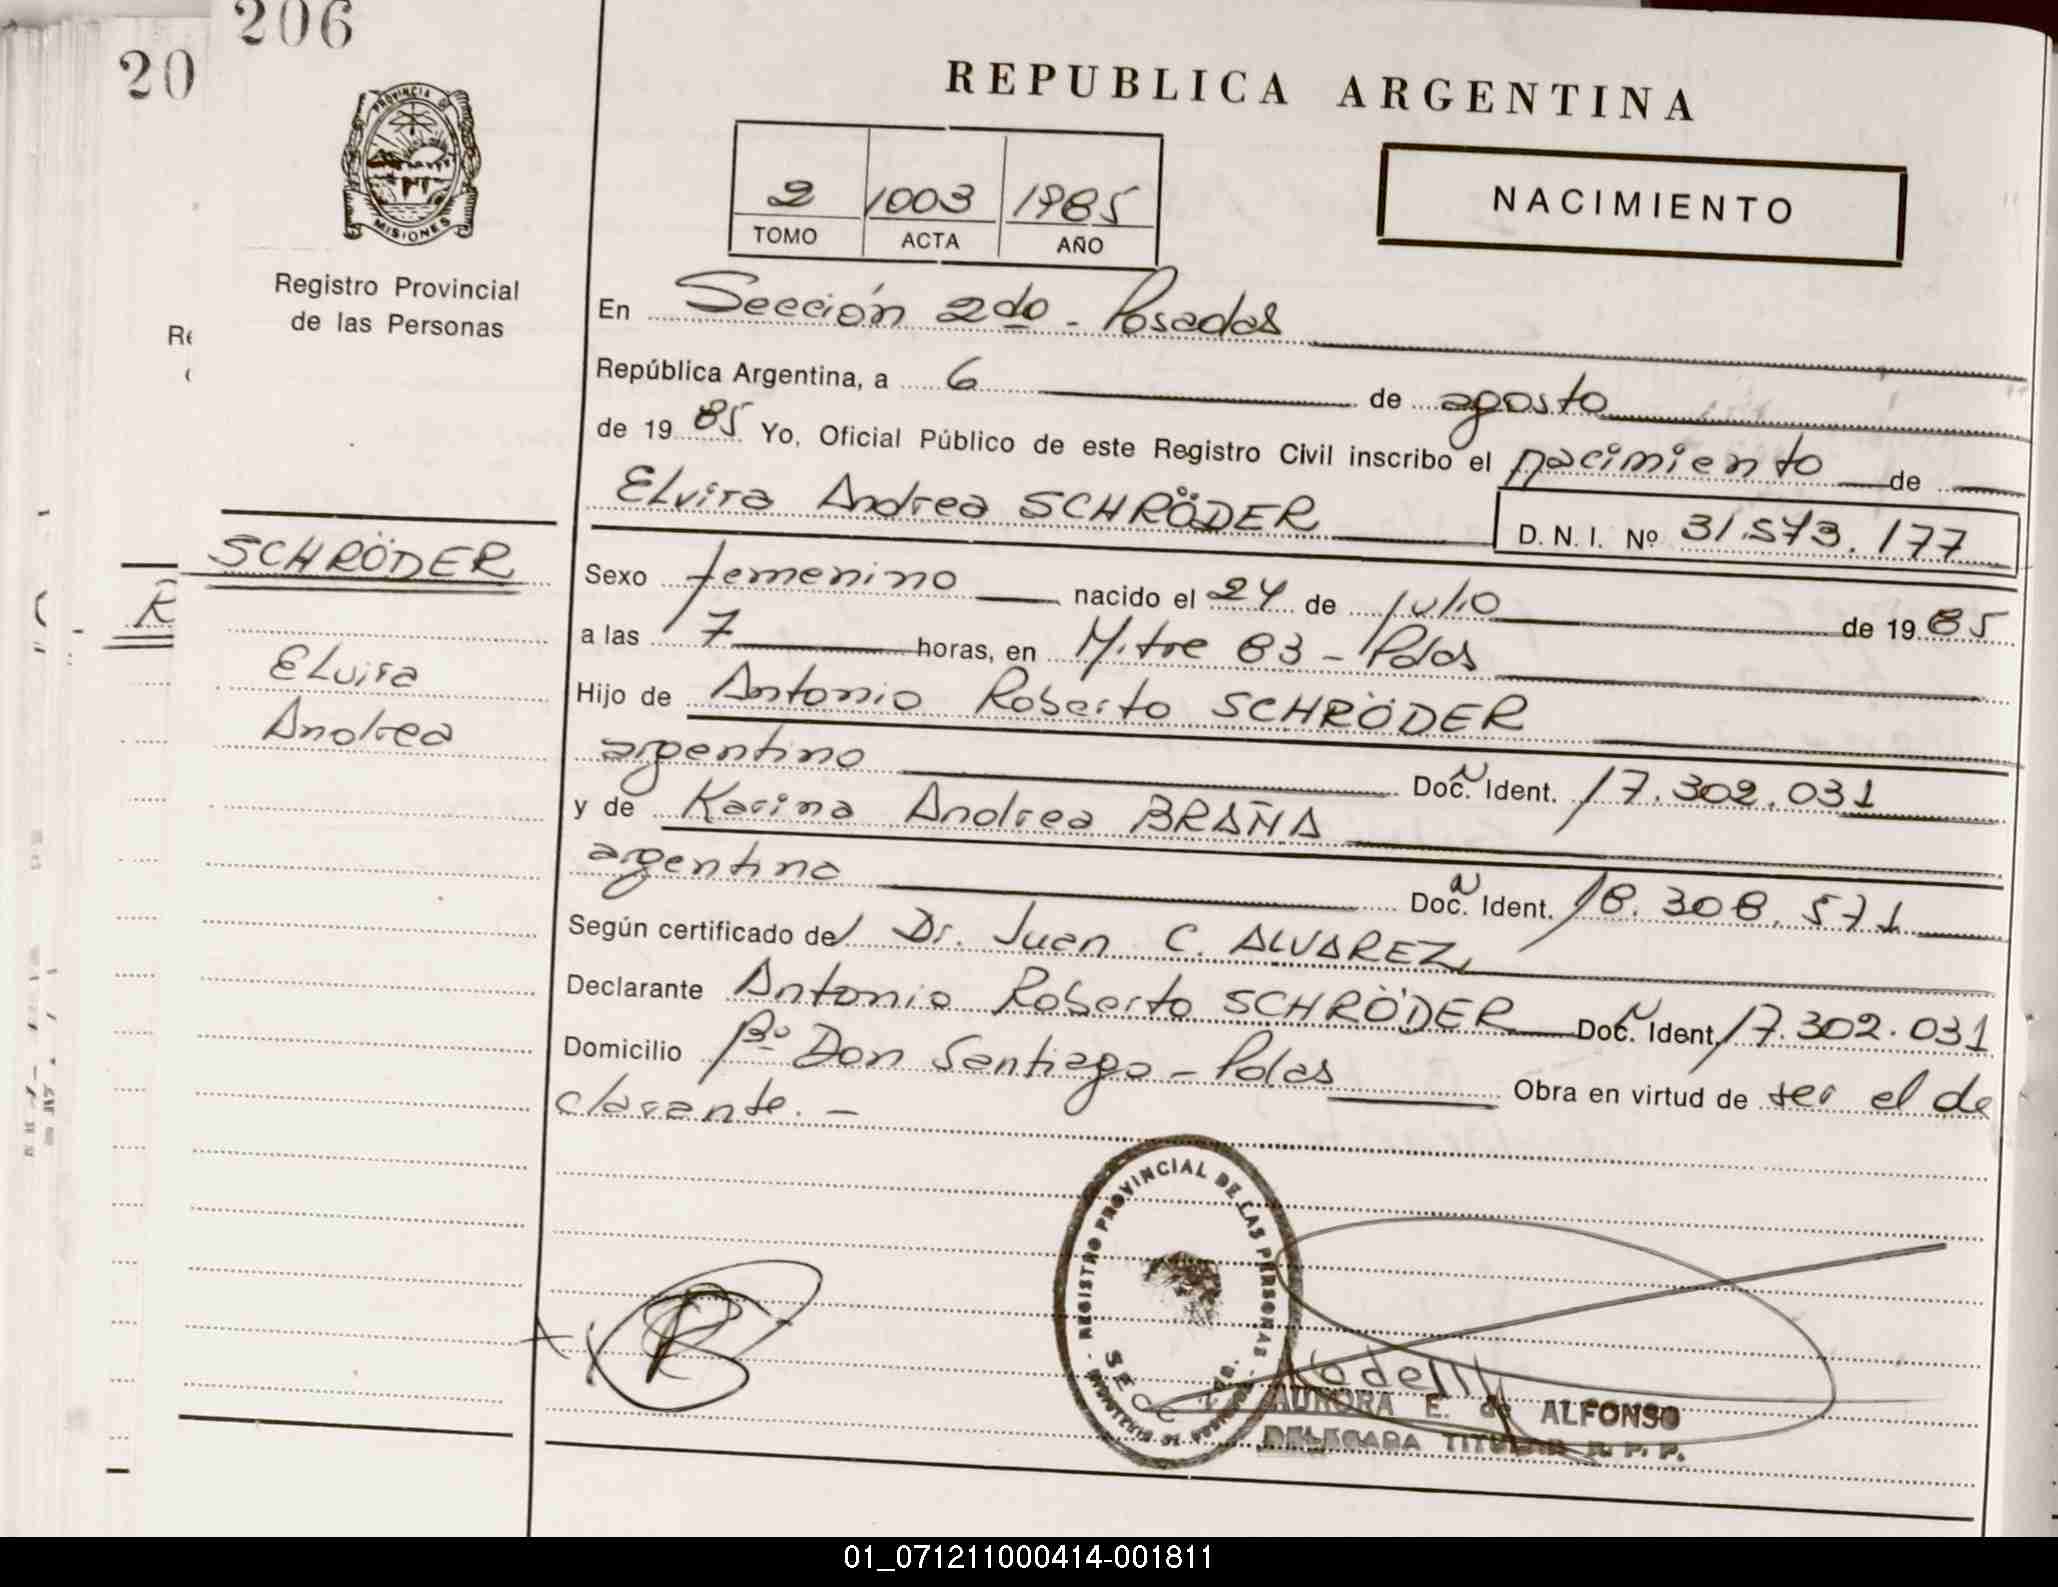 206
20
PROVINCIA DE
MISIONES
Registro Provincial
de las Personas
REPUBLICA ARGENTINA
2 1003 1985
TOMO ACTA AÑO
NACIMIENTO
En Sección 2do - Posadas
República Argentina, a 6 de agosto
de 1985 Yo, Oficial Público de este Registro Civil inscribo el nacimiento de
Elvira Andrea SCHRÖDER
D. N. I. Nº 31.573.177
SCHRÖDER
Elvira
Andrea
Sexo femenino nacido el 24 de julio de 1985
a las 7 horas, en Mitre 83 - Pdas
Hijo de Antonio Roberto SCHRÖDER
argentino Doc. N Ident. 17.302.031
y de Karina Andrea BRAÑA
argentina Doc. N Ident. 18.308.571
Según certificado del Dr. Juan C. ALVAREZ
Declarante Antonio Roberto SCHRÖDER Doc. N Ident. 17.302.031
Domicilio Bº Don Santiago - Pdas Obra en virtud de ser el de
clarante. -
REGISTRO PROVINCIAL DE LAS PERSONAS
AURORA E. de ALFONSO
DELEGADA TITULAR R. P. P.
01_071211000414-001811